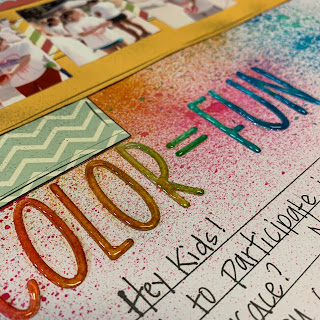 COLOR=FUN
Hey Kids!
to participate
race?